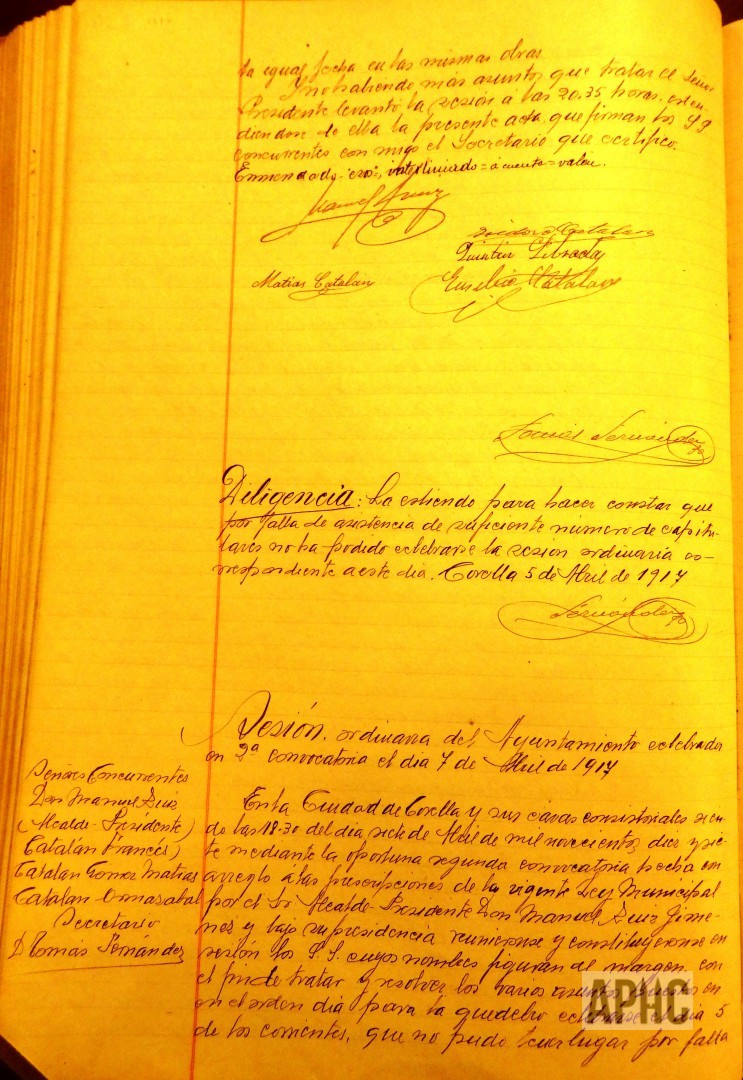 la igual fecha en las mismas obras
Y no habiendo más asuntos que tratar el Señor
Presidente levantó la sesión á las 20,35 horas, exten
diendose de ella la presente acta que firman los S.S
concurrentes con migo el Secretario que certifico.
Enmendado = interlineado = á cuenta = valen.
Manuel
Isidoro Catalan
Quintin
Matias Catalan
Catalan
Tomás Fernández
Diligencia: La extiendo para hacer constar que
por falta de asistencia de suficiente número de capitu-
lares no ha podido celebrarse la sesion ordinaria co-
rrespondiente a este dia. Corella 5 de Abril de 1917
Fernández
Sesión ordinaria del Ayuntamiento celebrada
en 2ª convocatoria el dia 7 de Abril de 1917
Señores Concurrentes
Don Manuel Luiz
(Alcalde-Presidente)
Catalán Francés
Catalan Gomez Matias
Catalan Ormazabal
Secretario
D Tomás Fernández
En la Ciudad de Corella y sus casas consistoriales sien-
do las 18-30 del dia siete de Abril de mil novecientos diez y sie-
te mediante la oportuna segunda convocatoria hecha con
arreglo á las prescripciones de la vigente Ley Municipal
por el Sr Alcalde-Presidente Don Manuel Luiz Gime-
nez y bajo su presidencia reunieronse y constituyeronse en
sesión los S.S. cuyos nombres figuran al margen con
el fin de tratar y resolver los varios asuntos puestos en
en el orden dia para la que debió celebrarse el dia 5
de los corrientes, que no pudo tener lugar por falta
APHC